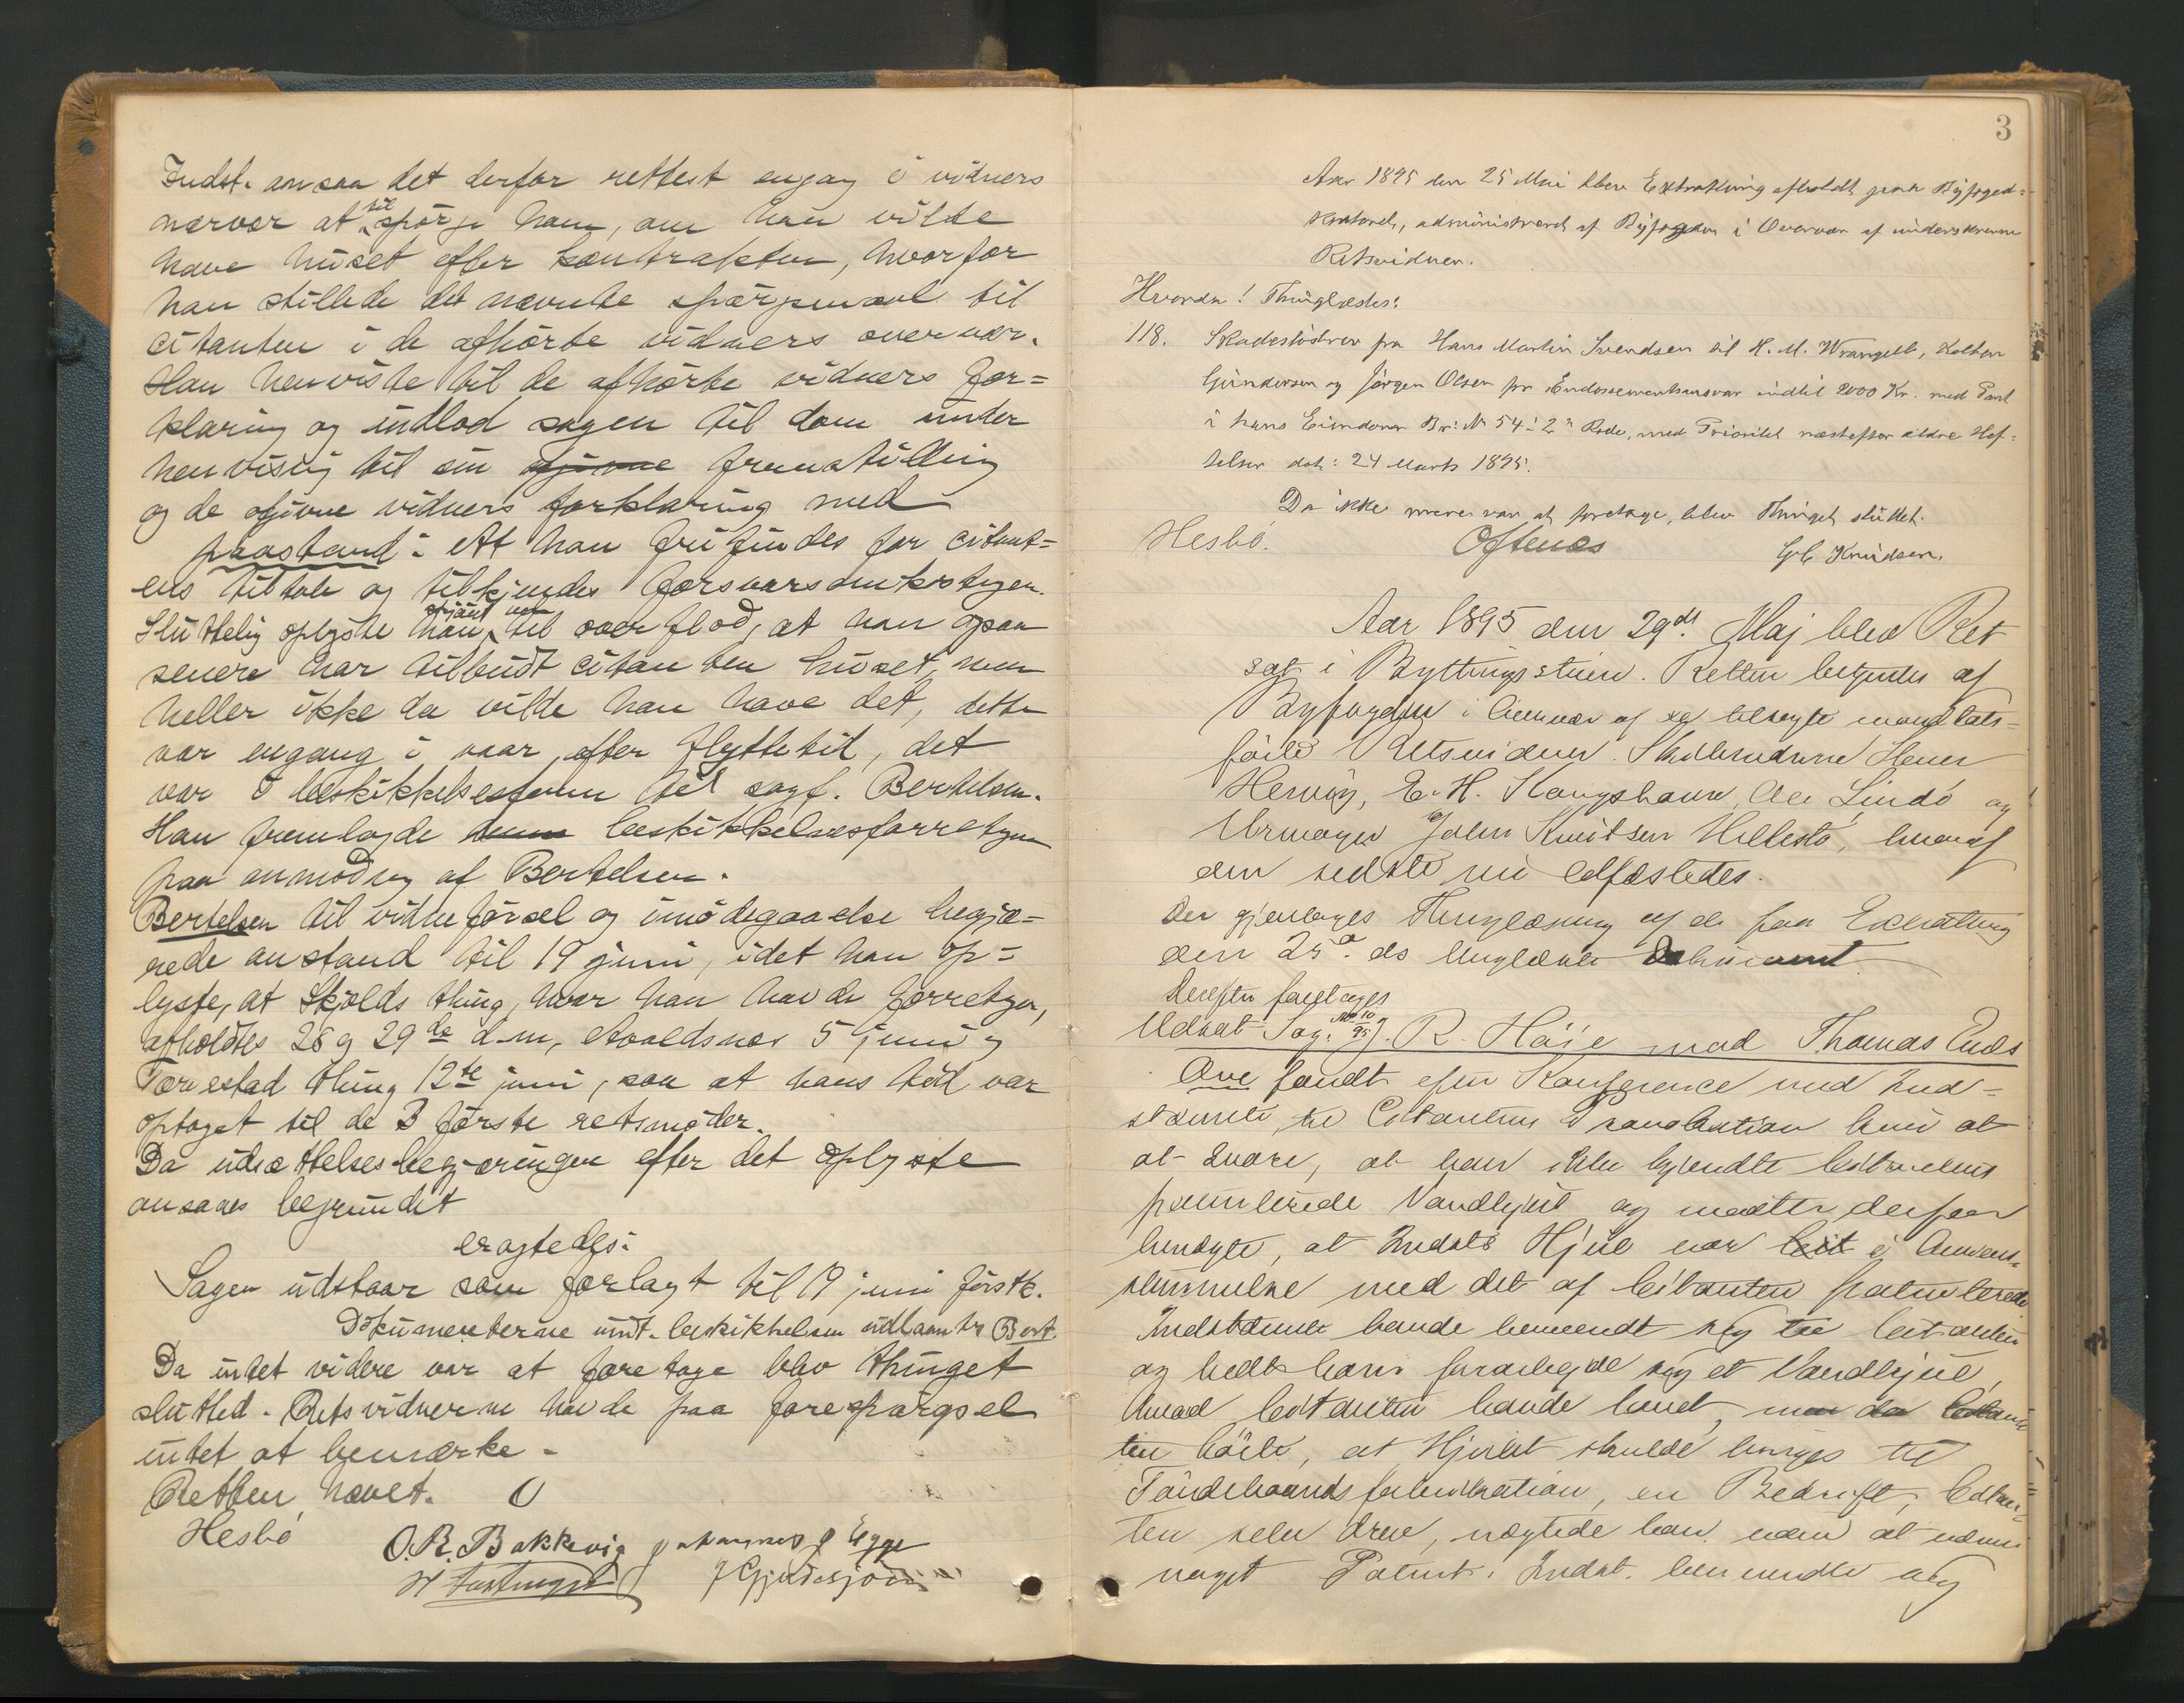 Indst. ansaa det derfor rettest engang i vidners
nærvær at til spørge ham, om han vilde
have huset efter kontrakten, hvorfor
han stillede det nævnte spørgsmaal til
citanten i de afhørte vidners overvær.
Han henviste til de afhørte vidners for=
klaring og indlod sagen til dom under
henvisnig til sin givne fremstilling
og de afgivne vidners forklaring med
paastand: At han frifindes for citant=
ens tiltale og tilkjendes forsvarsomkostngen.
Sluttelig oplyste han, til overflod, at han ogsaa
senere har tilbudt citanten huset, men
heller ikke da vilde han have det, dette
var engang i vaar, efter flyttetid, det
var i beskikkelsesform til sagf. Bertelsen.
Han fremlagde denne beskikkelsesforretngen
paa anmodng af Bertelsen.
Bertelsen til vidneførsel og imødegaaelse begjæ=
rede anstand til 19 juni, idet han op=
lyste, at Skjolds thing, hvor han havde forretngen,
afholdtes 28 og 29de d.m., Avaldsnes 5 juni og
Torvestad thing 12te juni, saa at hans tid var
optaget til de 3 første retsmøder.
Da udsættelsesbegjæringen efter det oplyste
ansaaes begrundet
eragtedes:
Sagen udstaar som forlagt til 19 juni førstk.
Dokumenterne undt. beskikkelsen udlaantes Bert.
Da intet videre var at foretage blev thinget
slutted. Retsvidnerne havde paa forespørgsel
intet at bemærke.
Retten hævet.
Hesbø
O. R. Bakkevig Johannes J Egge
3
Aar 1895 den 25 Mai blev Extrathing afholdt paa Byfoged=
kontoret, administreret af Byfogden i Overvær af underskrevne
Retsvidner.
Hvorda! Thinglæstes:
118. Skadesløsbrev fra Hans Martin Svendsen til H. M. Wrangell, Kolben
Gundersen og Jørgen Olsen for Endossementsansvar indtil 2000 Kr. med Pant
i hans Eiendom Br: No 54 i 2n Rode, med Prioritet næstefter ældre Hef=
telser dat: 24 Marts 1895.
Da ikke mere var at foretage, blev Thinget sluttet.
Hesbø. Oftenes Gb. Knudsen.
Aar 1895 den 29de Maj blev Ret
sat i Bythingsstuen. Retten betjentes af
Byfogden i Overvær af de tilsagte mandtals=
førte Retsvidner Skibsrederne Henr
Hervig, E. H. Kongshavn, Ole Lindø og
Urmager John Knutsen Hillestø, hvoraf
den sidste nu edfæstedes.
Der gjentoges Thinglæsning af de paa Extrathing
den 25de ds thinglæste Dokument.
Derefter foretoges
Udsat Sag. No 10/95. R. Høie mod Thomas Eids
Ove fandt efter Konference med Ind=
stævnte, til Citantens Provokation kun at
at svare, at han ikke kjendte Citantens
patenterede Vandhjul og maatte derfor
benægte, at Indsts Hjul var lit i Overens=
stemmelse med det af Citanten patenterede
Indstævnte havde henvendt sig til Citanten
og bedt ham forarbejde sig et Vandhjul,
hvad Citanten havde lovet, men da Citan
ten hørte, at Hjulet skulde bruges til
Tøndebaandsfabrikation, en Bedrift, Citan=
ten selv drev, nægtede han uden at nævne
noget Patent. Indst. henvendte sig